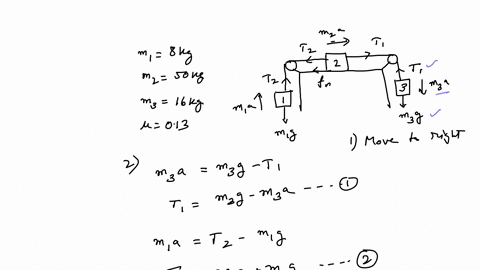 m₁ = 8kg
m₂ = 50kg
m₃ = 16kg
μ = 0.13
m₂a
T₂
T₁
2
fₙ
T₂
T₁
m₁a
1
3
m₃a
m₁g
m₃g
1) Move to right
2) m₃a = m₃g - T₁
T₁ = m₃g - m₃a ---- ①
m₁a = T₂ - m₁g
---- ②